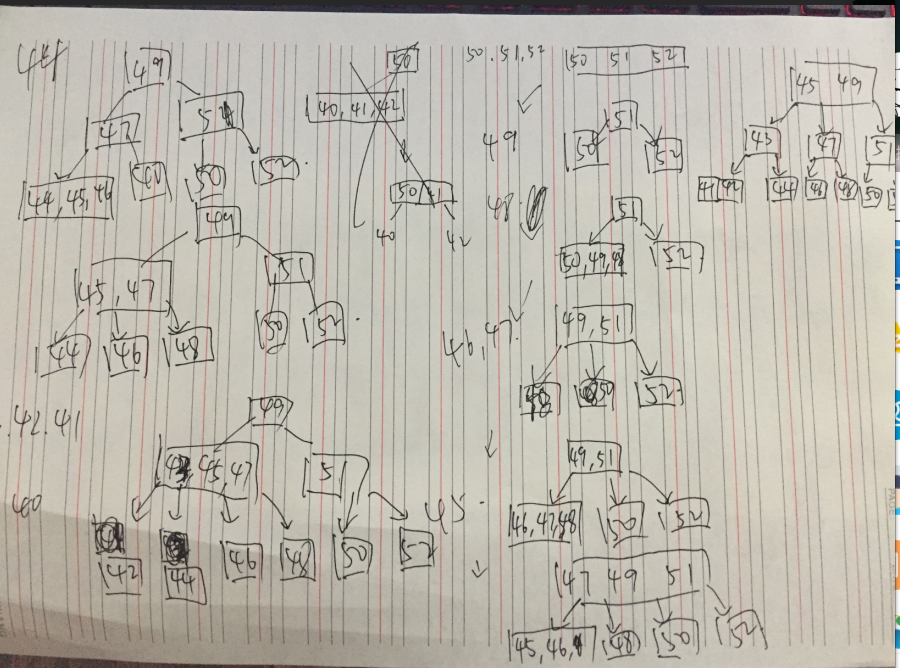 44
49
47 51
44, 45, 46 48 50 52
49
45, 47 51
44 46 48 50 52
.42.41
49
43, 45, 47 51
40
42 44 46 48 50 52
50
40, 41, 42
50 41
40 42
50.51,52
50 51 52
49
51
50 52
48
51
50, 49, 48 52
46, 47
49, 51
48 50 52
49, 51
46, 47, 48 50 52
45
47 49 51
45, 46 48 50 52
45 49
43 47 51
41 42 44 46 48 50